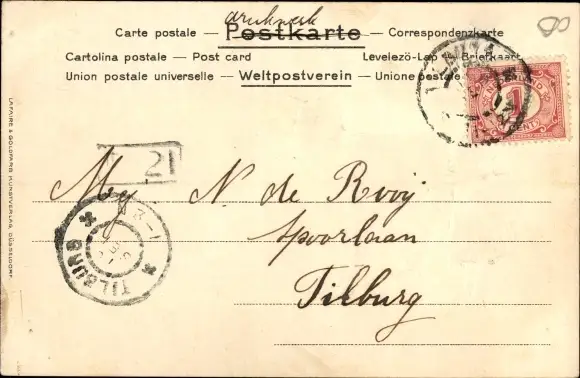 drukwerk
Carte postale — Postkarte — Correspondenzkarte
Cartolina postale — Post card Levelezö-Lap Briefkaart
Union postale universelle — Weltpostverein — Unione postale
1
CENT
21
Mej N de Rooij
Spoorlaan
Tilburg
TILBURG
LAFAIRE & GOLDFARB KUNSTVERLAG, DÜSSELDORF